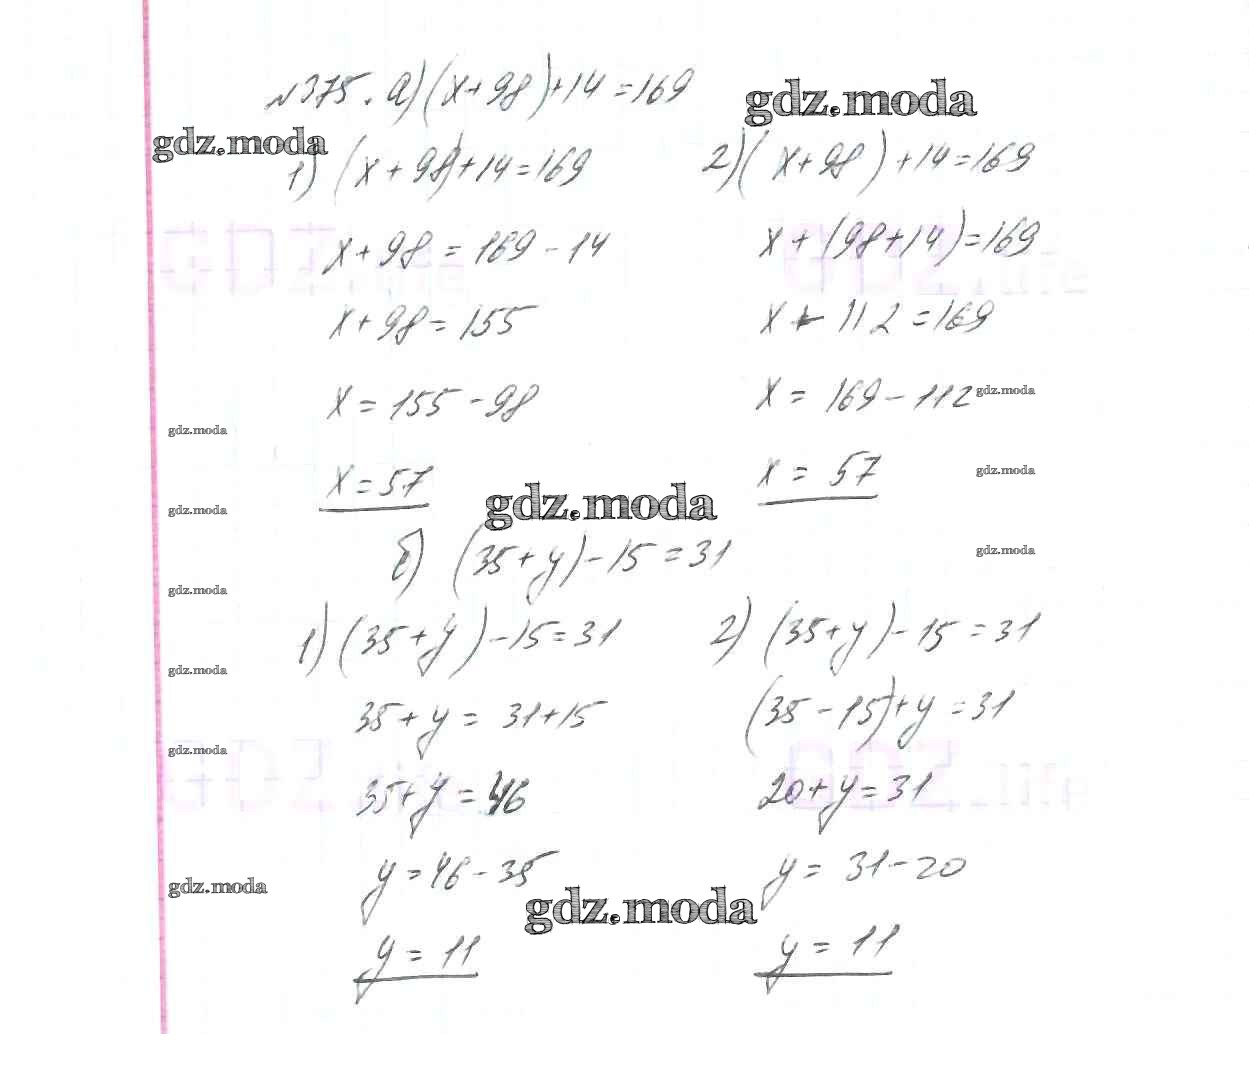 №375. а) (x+98)+14=169
gdz.moda
gdz.moda
1) (x+98)+14=169
x+98=169-14
x+98=155
x=155-98
x=57
2) (x+98)+14=169
x+(98+14)=169
x+112=169
x=169-112
x=57
gdz.moda
gdz.moda
gdz.moda
gdz.moda
gdz.moda
gdz.moda
б) (35+y)-15=31
gdz.moda
1) (35+y)-15=31
35+y=31+15
35+y=46
y=46-35
y=11
2) (35+y)-15=31
(35-15)+y=31
20+y=31
y=31-20
y=11
gdz.moda
gdz.moda
gdz.moda
gdz.moda
gdz.moda